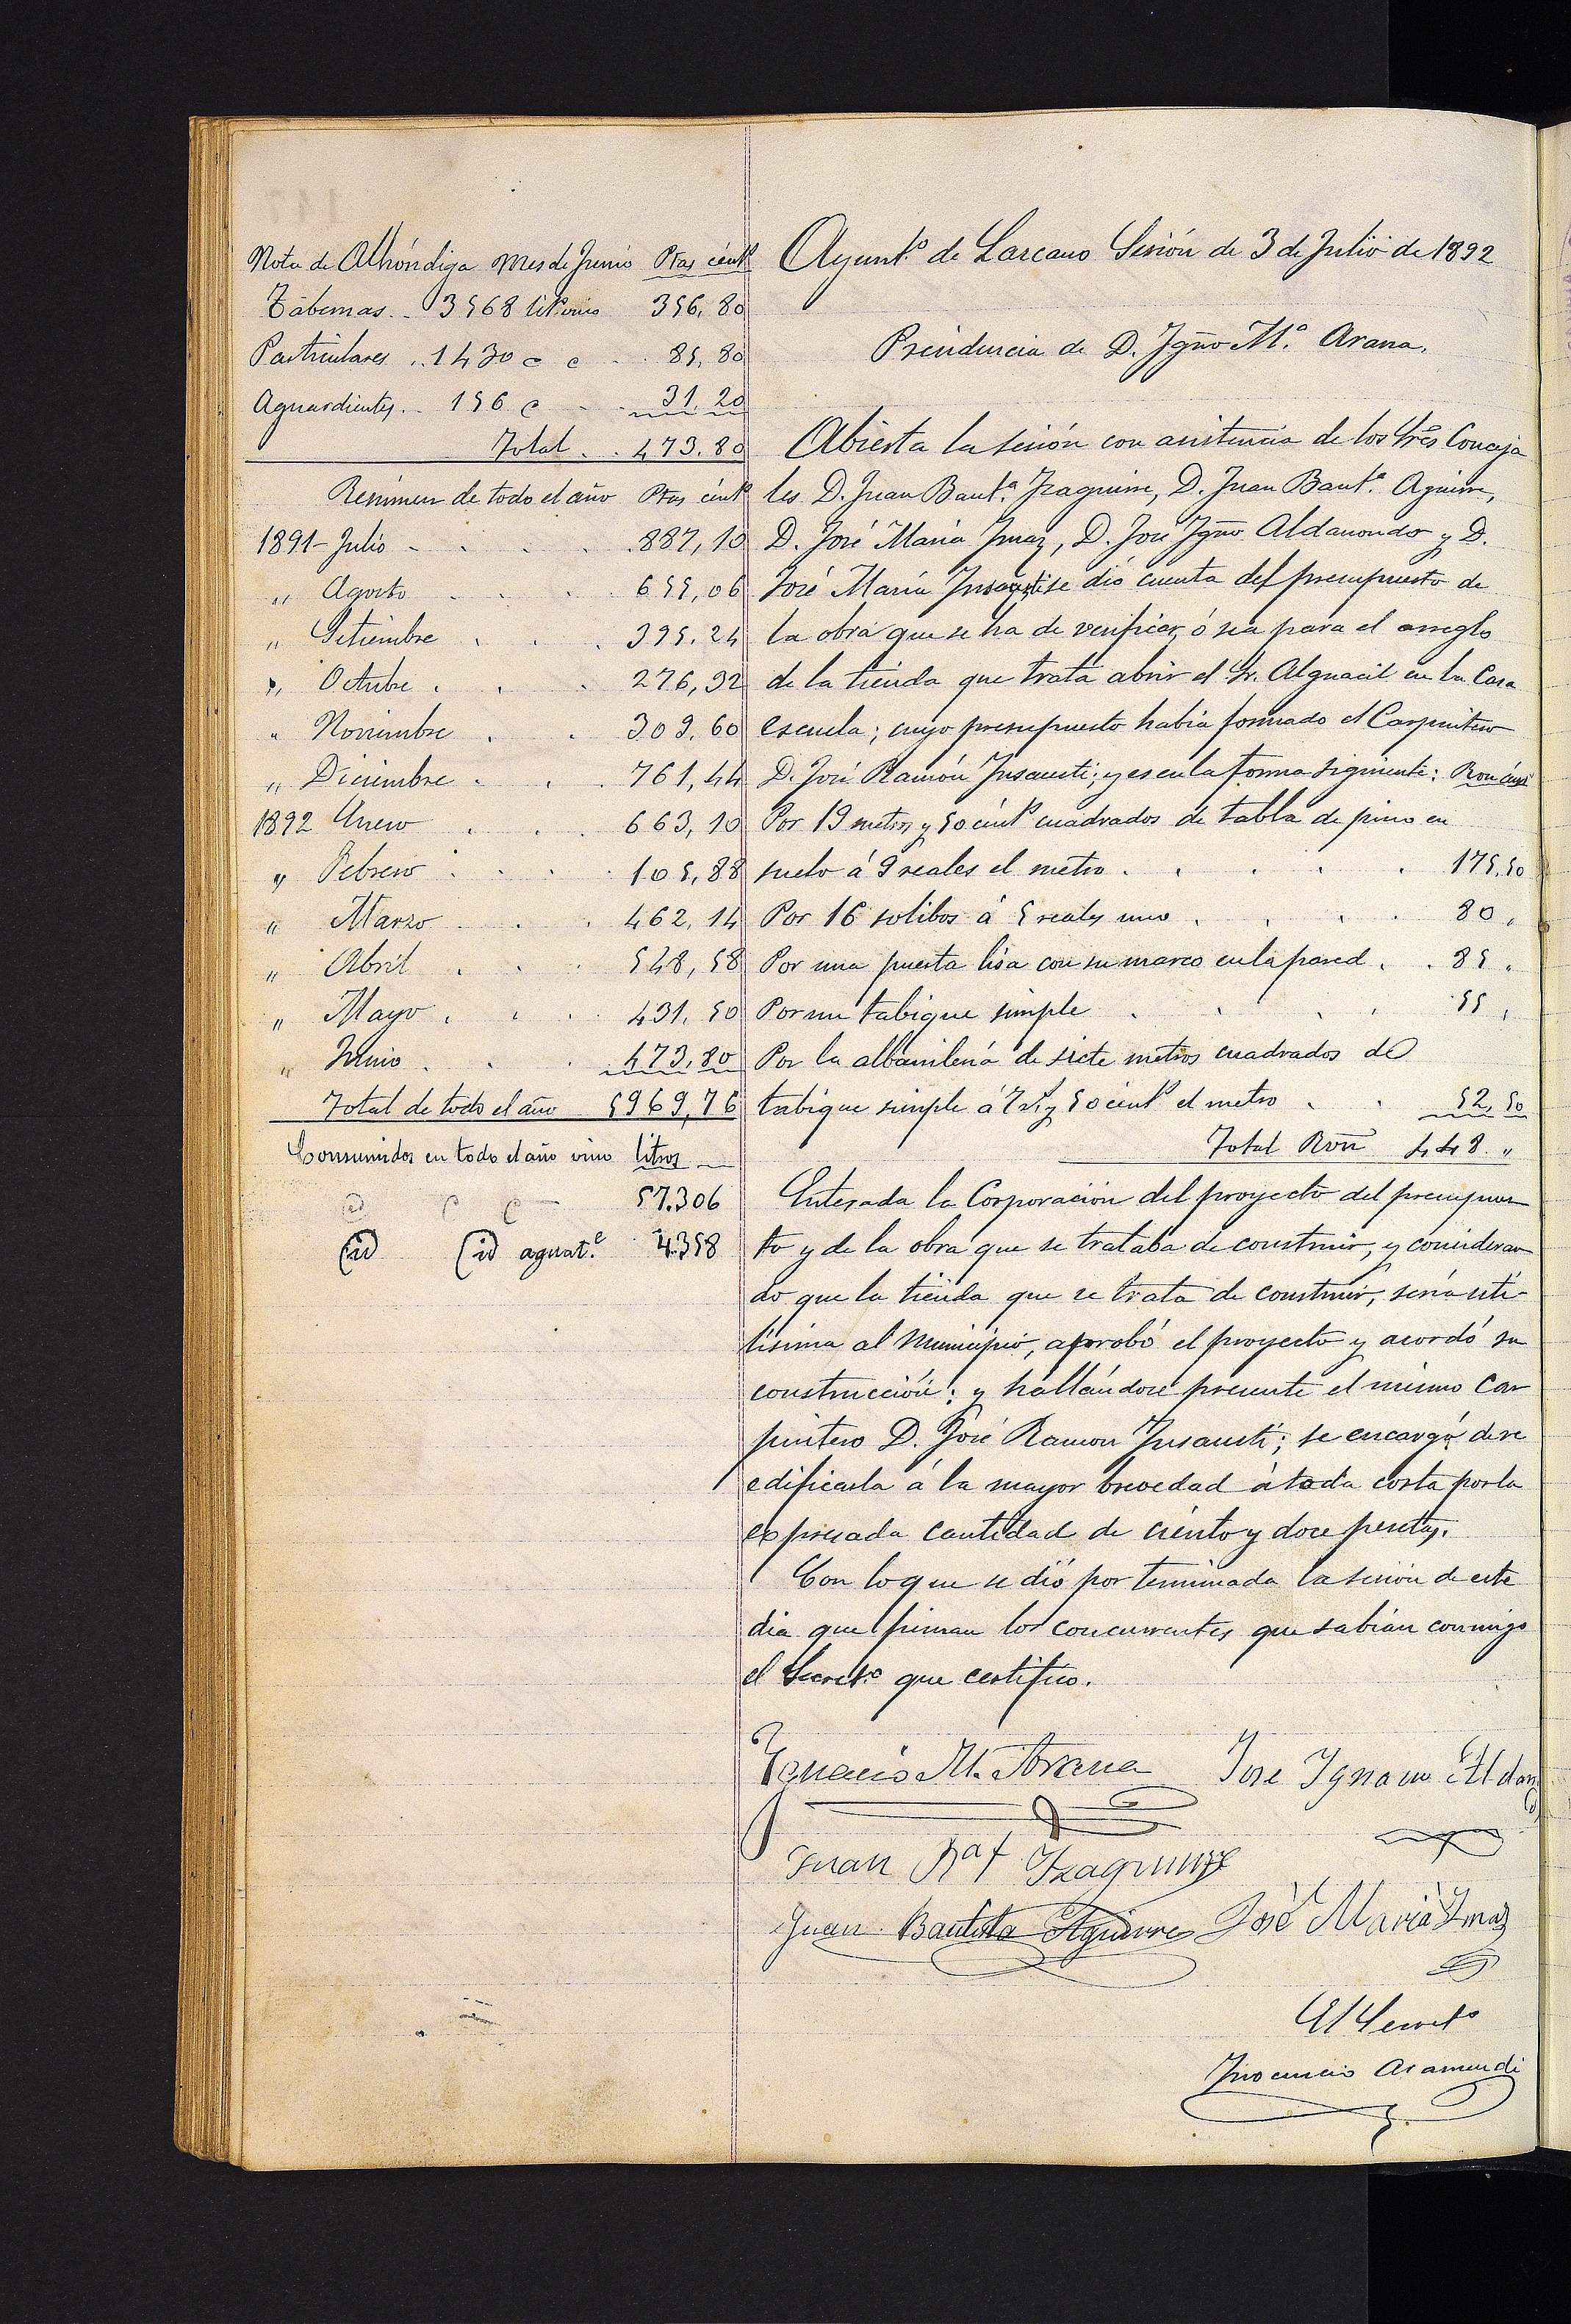 Nota de Alhóndiga mes de Junio Ptas cént.s
Tabernas.. 3568 lit.s vino 356,80
Particulares .. 1430 " " . . 85,80
Aguardientes.. 156 " . . 31,20
Total . . 473.80
Resúmen de todo el año Ptas cént.s
1891 - Julio . . . . . 887,10
" Agosto . . . . 655,06
" Setiembre . . . 395.24
" Octubre . . . 276,32
" Noviembre . . 309,60
" Diciembre . . . 761,44
1892 Enero . . . 663,10
" Febrero . . . . 105,88
" Marzo . . . 462,14
" Abril . . . 548,58
" Mayo . . . 431,50
" Junio . . . 473,80
Total de todo el año 5969,76
Consumidos en todo el año vino litros
57.306
id id aguat.e 4.358
Ayunt.o de Lazcano Sesión de 3 de Julio de 1892
Presidencia de D. Ygño M.a Arana.
Abierta la sesión con asistencia de los Sres Conceja
les D. Juan Baut.a Yzaguirre, D. Juan Baut.a Aguirre,
D. José María Ymaz, D. José Ygño Aldanondo y D.
José María Ynsausti se dió cuenta del presupuesto de
la obra que se ha de verificar, ó sea para el arreglo
de la tienda que trata abrir el Sr. Alguacil en la Casa
escuela; cuyo presupuesto habia formado el Carpintero
D. José Ramón Ynsausti; y es en la forma siguiente: Ron cént.s
Por 19 metros y 50 cént.s cuadrados de tabla de pino en
suelo á 9 reales el metro . . . . . 175,50
Por 16 solibos á 5 reales uno . . . . 80 "
Por una puerta lisa con su marco en la pared . . 85 "
Por un tabique simple . . . . 55 "
Por la albañilería de siete metros cuadrados de
tabique simple á 7 rs y 50 cént.s el metro . . 52,50
Total Ron 448. "
Enterada la Corporación del proyecto del presupues
to y de la obra que se trataba de construir, y consideran
do que la tienda que se trata de construir, sería uti-
lísima al Municipio, aprobó el proyecto y acordó su
construcción: y hallándose presente el mismo Car
pintero D. José Ramon Ynsausti; se encargó de re
edificarla á la mayor brevedad á toda costa por la
expresada cantidad de ciento y doce pesetas.
Con lo que se dió por terminada la sesión de este
dia que firman los concurrentes que sabían conmigo
el Secret.o que certifico.
Ygnacio M. Arana Jose Ygnacio Aldan
do
Juan Bat Yzaguirre
Juan Bautista Aguirre José María Ymaz
El Secret.o
Ynocencio Aramendi